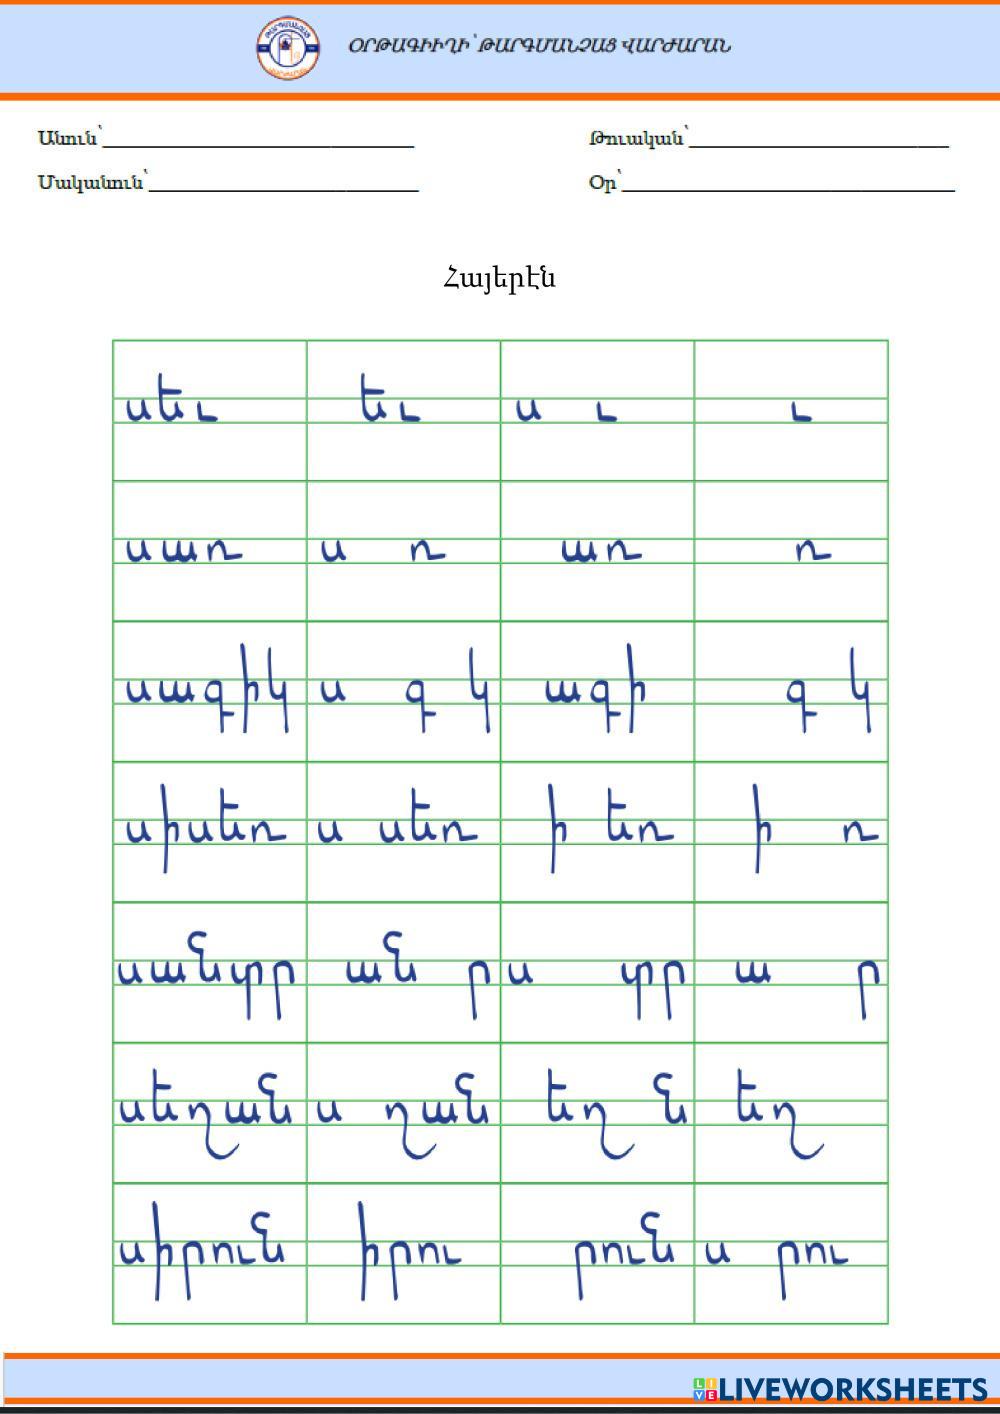 ՕՐԹԱԳԻՒՂԻ՝ ԹԱՐԳՄԱՆՉԱՑ ՎԱՐԺԱՐԱՆ
Անուն՝ Թուական՝
Մականուն՝ Օր՝
Հայերէն
սեւ եւ ս ւ ւ
սառ ս ռ առ ռ
սագիկ ս գ կ ագի գ կ
սիսեռ ս սեռ ի եռ ի ռ
սանտր ան ր ս տր ա ր
սեղան ս ղան եղ ն եղ
սիրուն իրու րուն ս րու
LIVEWORKSHEETS